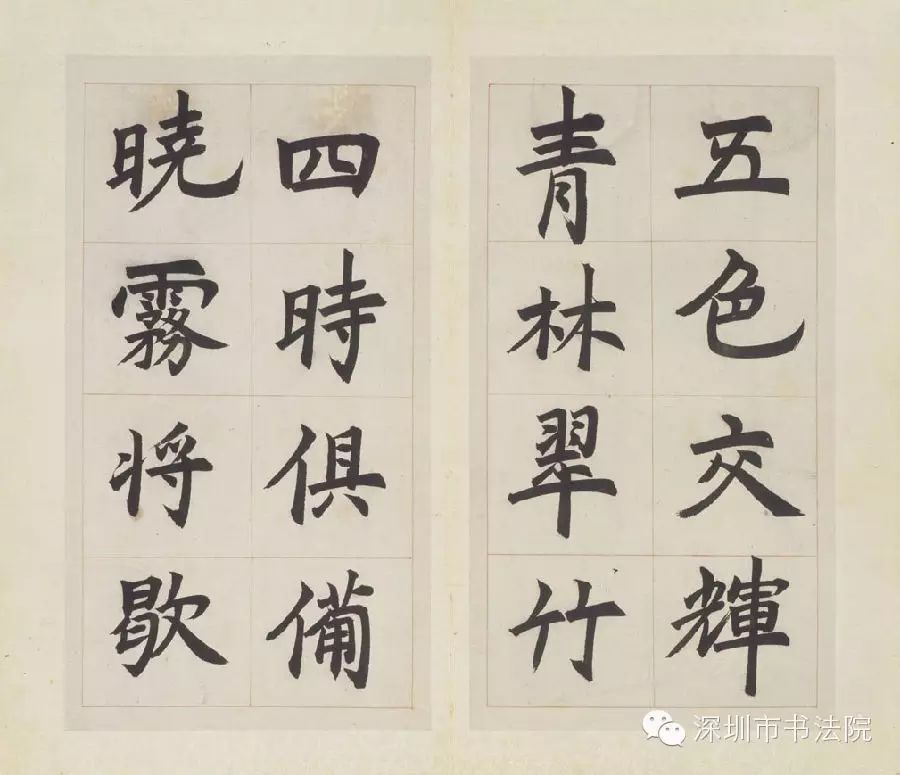 五色交輝
青林翠竹
四時俱備
曉霧将歇
深圳市书法院